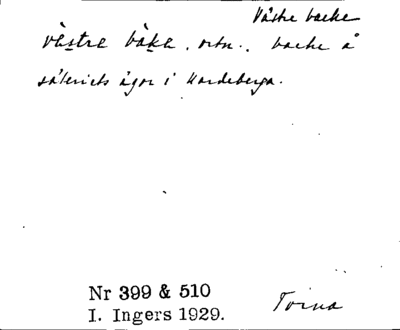 Västre backe
västra båka. ortn.. backe å
säteriets ägor i Hardeberga.
Nr 399 & 510
I. Ingers 1929.
Torna